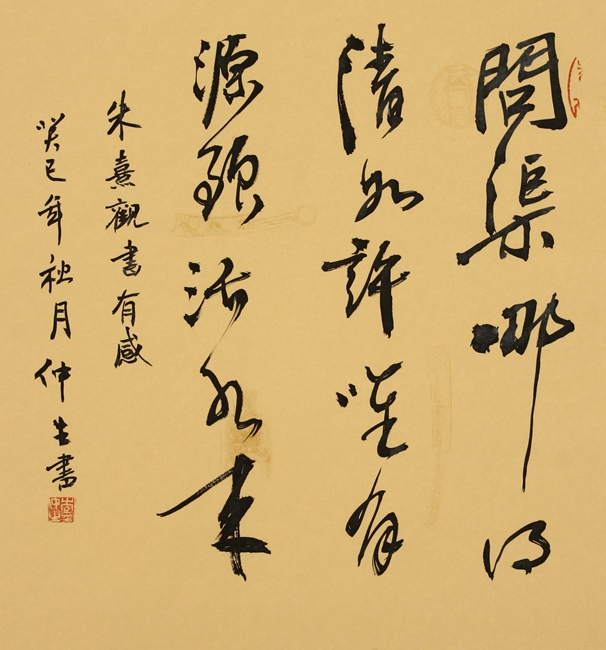 問渠哪得
清如許唯有
源頭活水来
朱熹觀書有感
癸巳年秋月仲生書